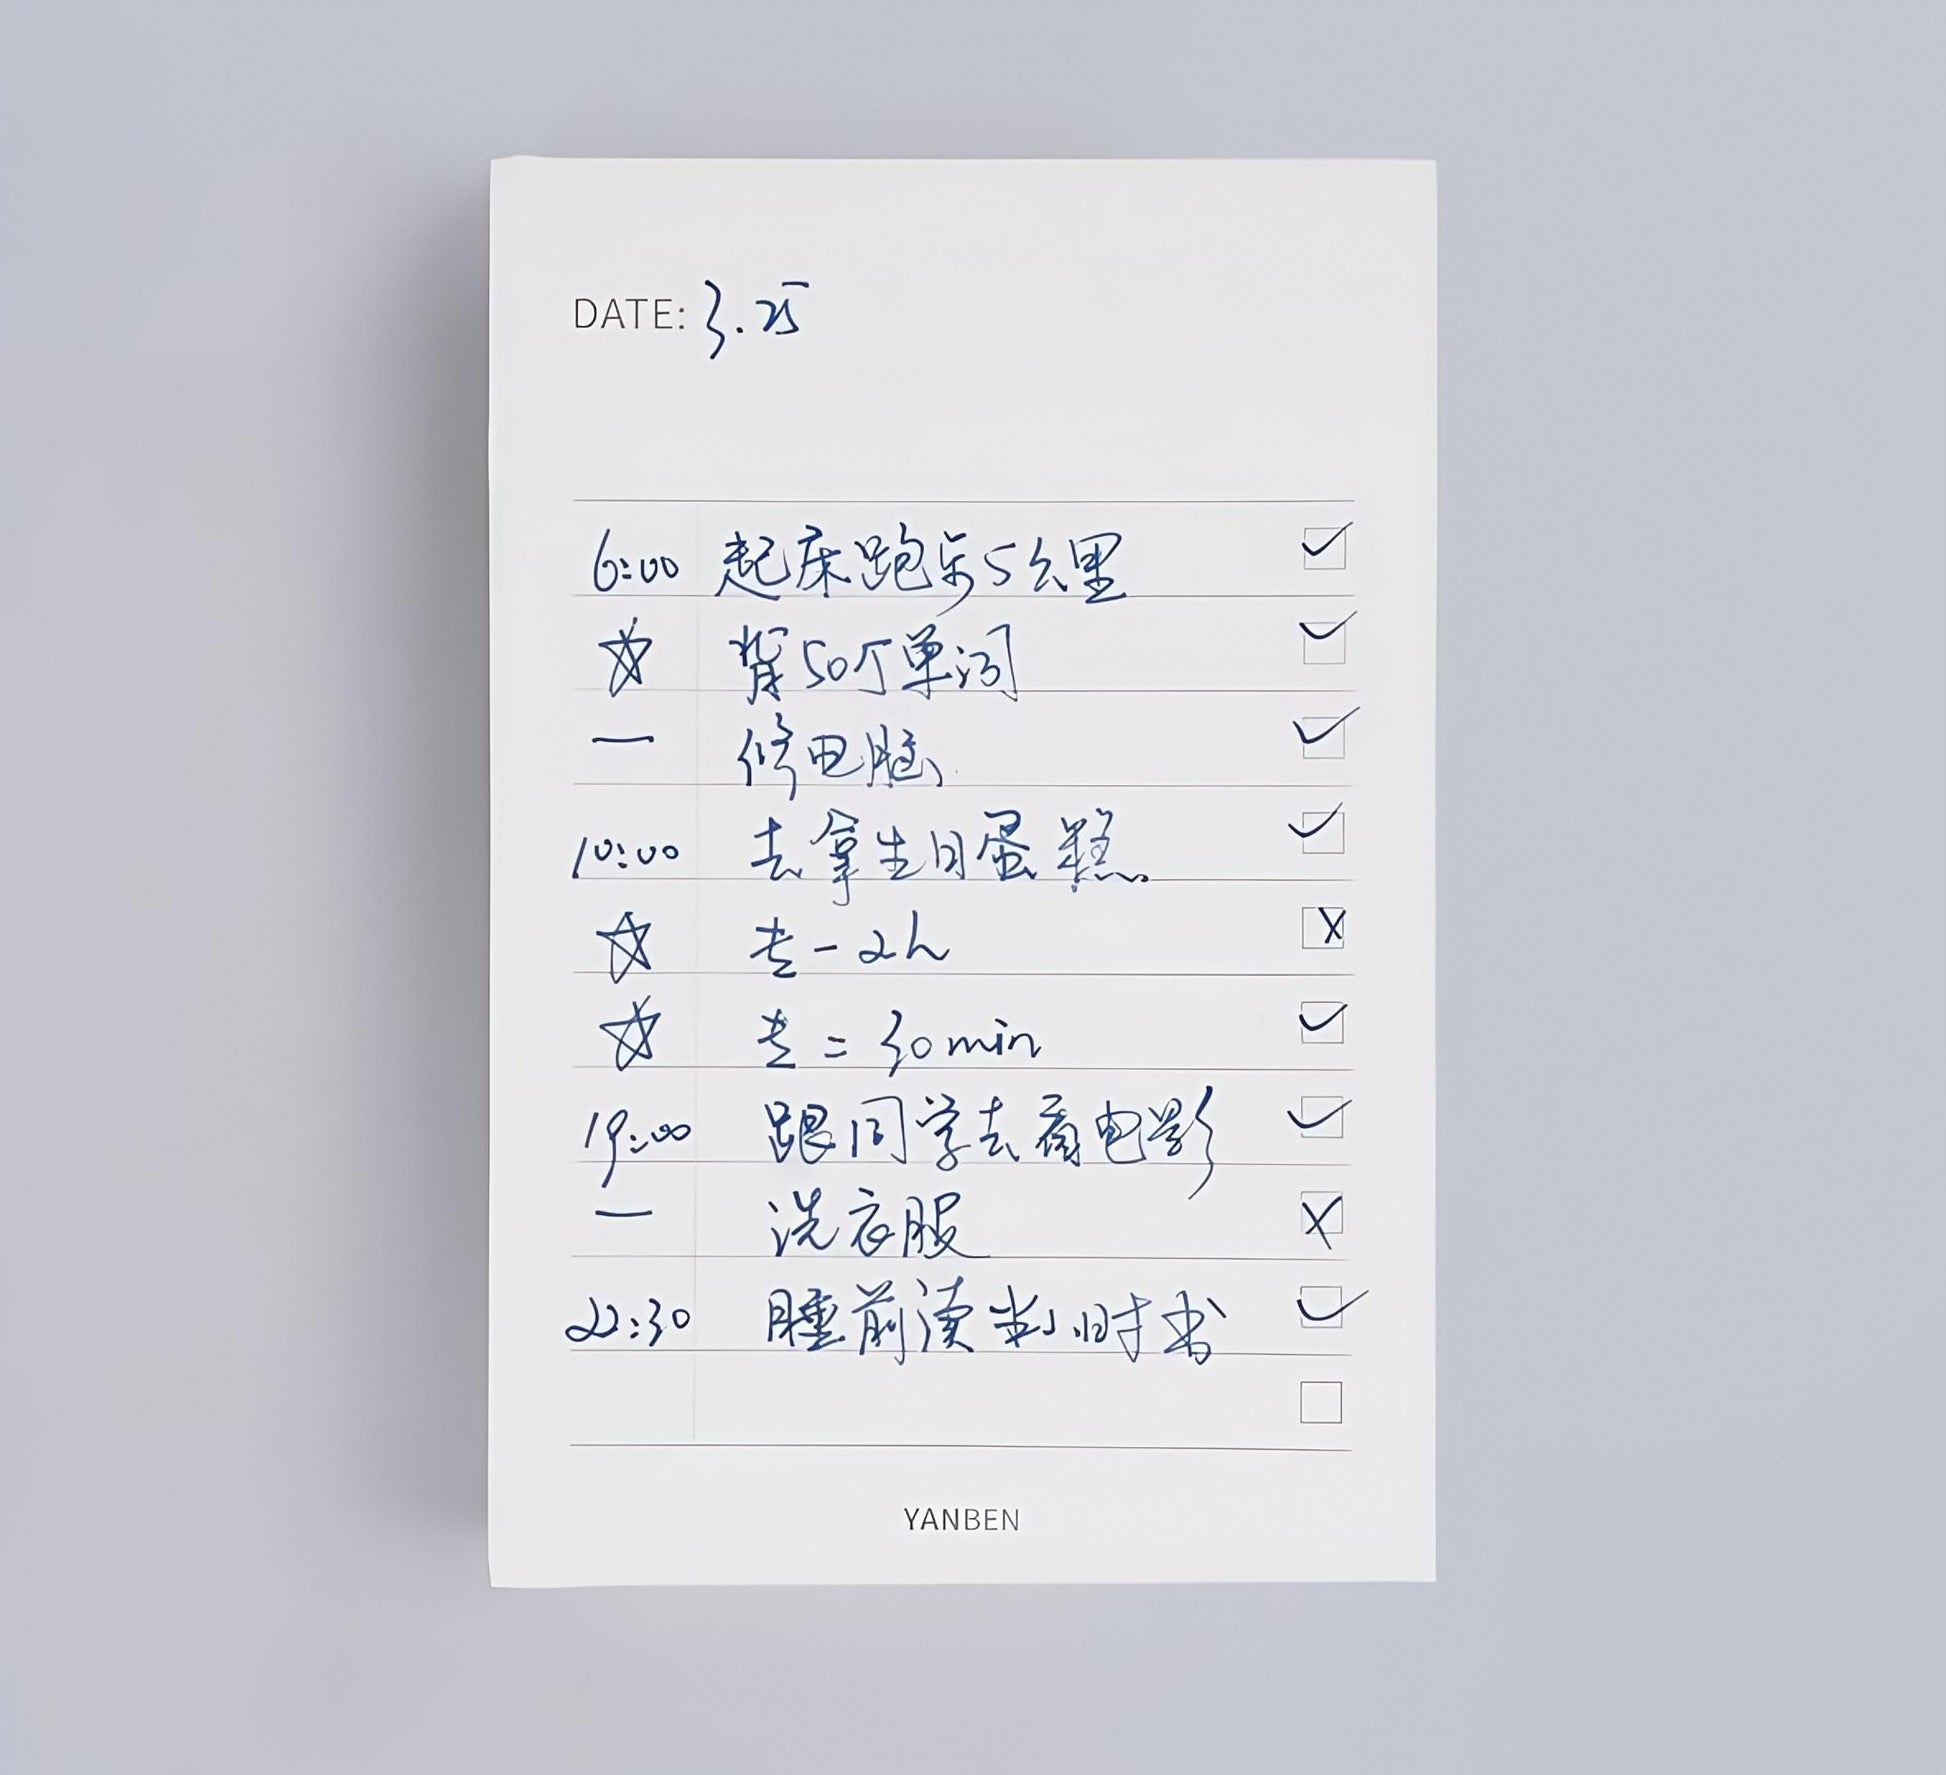 DATE: 3.25
6:00 起床跑步5公里
☆ 背50个单词
— 修电脑
10:00 去拿生日蛋糕
☆ 专一2h
☆ 专二30min
19:00 跟同学去看电影
— 洗衣服
22:30 睡前读半小时书
YANBEN